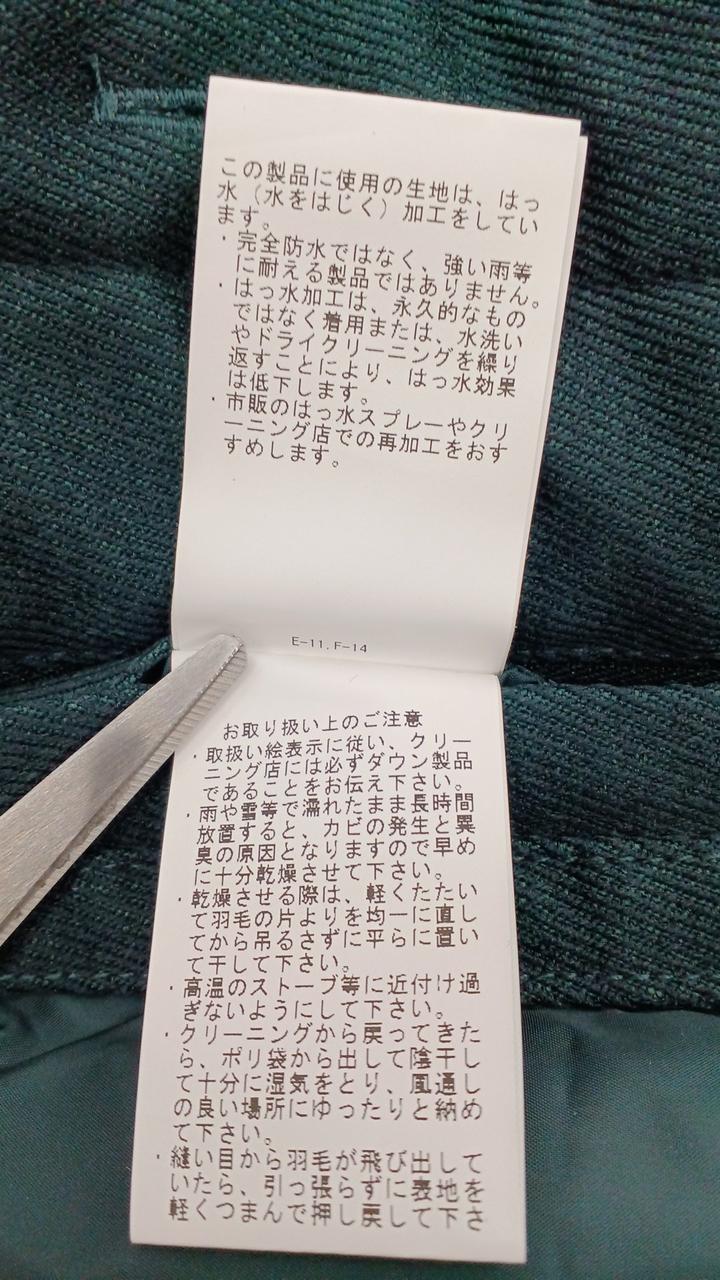 この製品に使用の生地は、はっ
水（水をはじく）加工をしてい
ます。
・完全防水ではなく、強い雨等
に耐える製品ではありません。
・はっ水加工は、永久的なもの
ではなく着用または、水洗い
やドライクリーニングを繰り
返すことにより、はっ水効果
は低下します。
・市販のはっ水スプレーやクリ
ーニング店での再加工をおす
すめします。
E-11.F-14
お取り扱い上のご注意
・取扱い絵表示に従い、クリー
ニング店には必ずダウン製品
であることをお伝え下さい。
・雨や雪等で濡れたまま長時間
放置すると、カビの発生と異
臭の原因となりますので早め
に十分乾燥させて下さい。
・乾燥させる際は、軽くたたい
て羽毛の片よりを均一に直し
てから吊るさずに平らに置い
て干して下さい。
・高温のストーブ等に近付け過
ぎないようにして下さい。
・クリーニングから戻ってきた
ら、ポリ袋から出して陰干し
て十分に湿気をとり、風通し
の良い場所にゆったりと納め
て下さい。
・縫い目から羽毛が飛び出して
いたら、引っ張らずに表地を
軽くつまんで押し戻して下さ